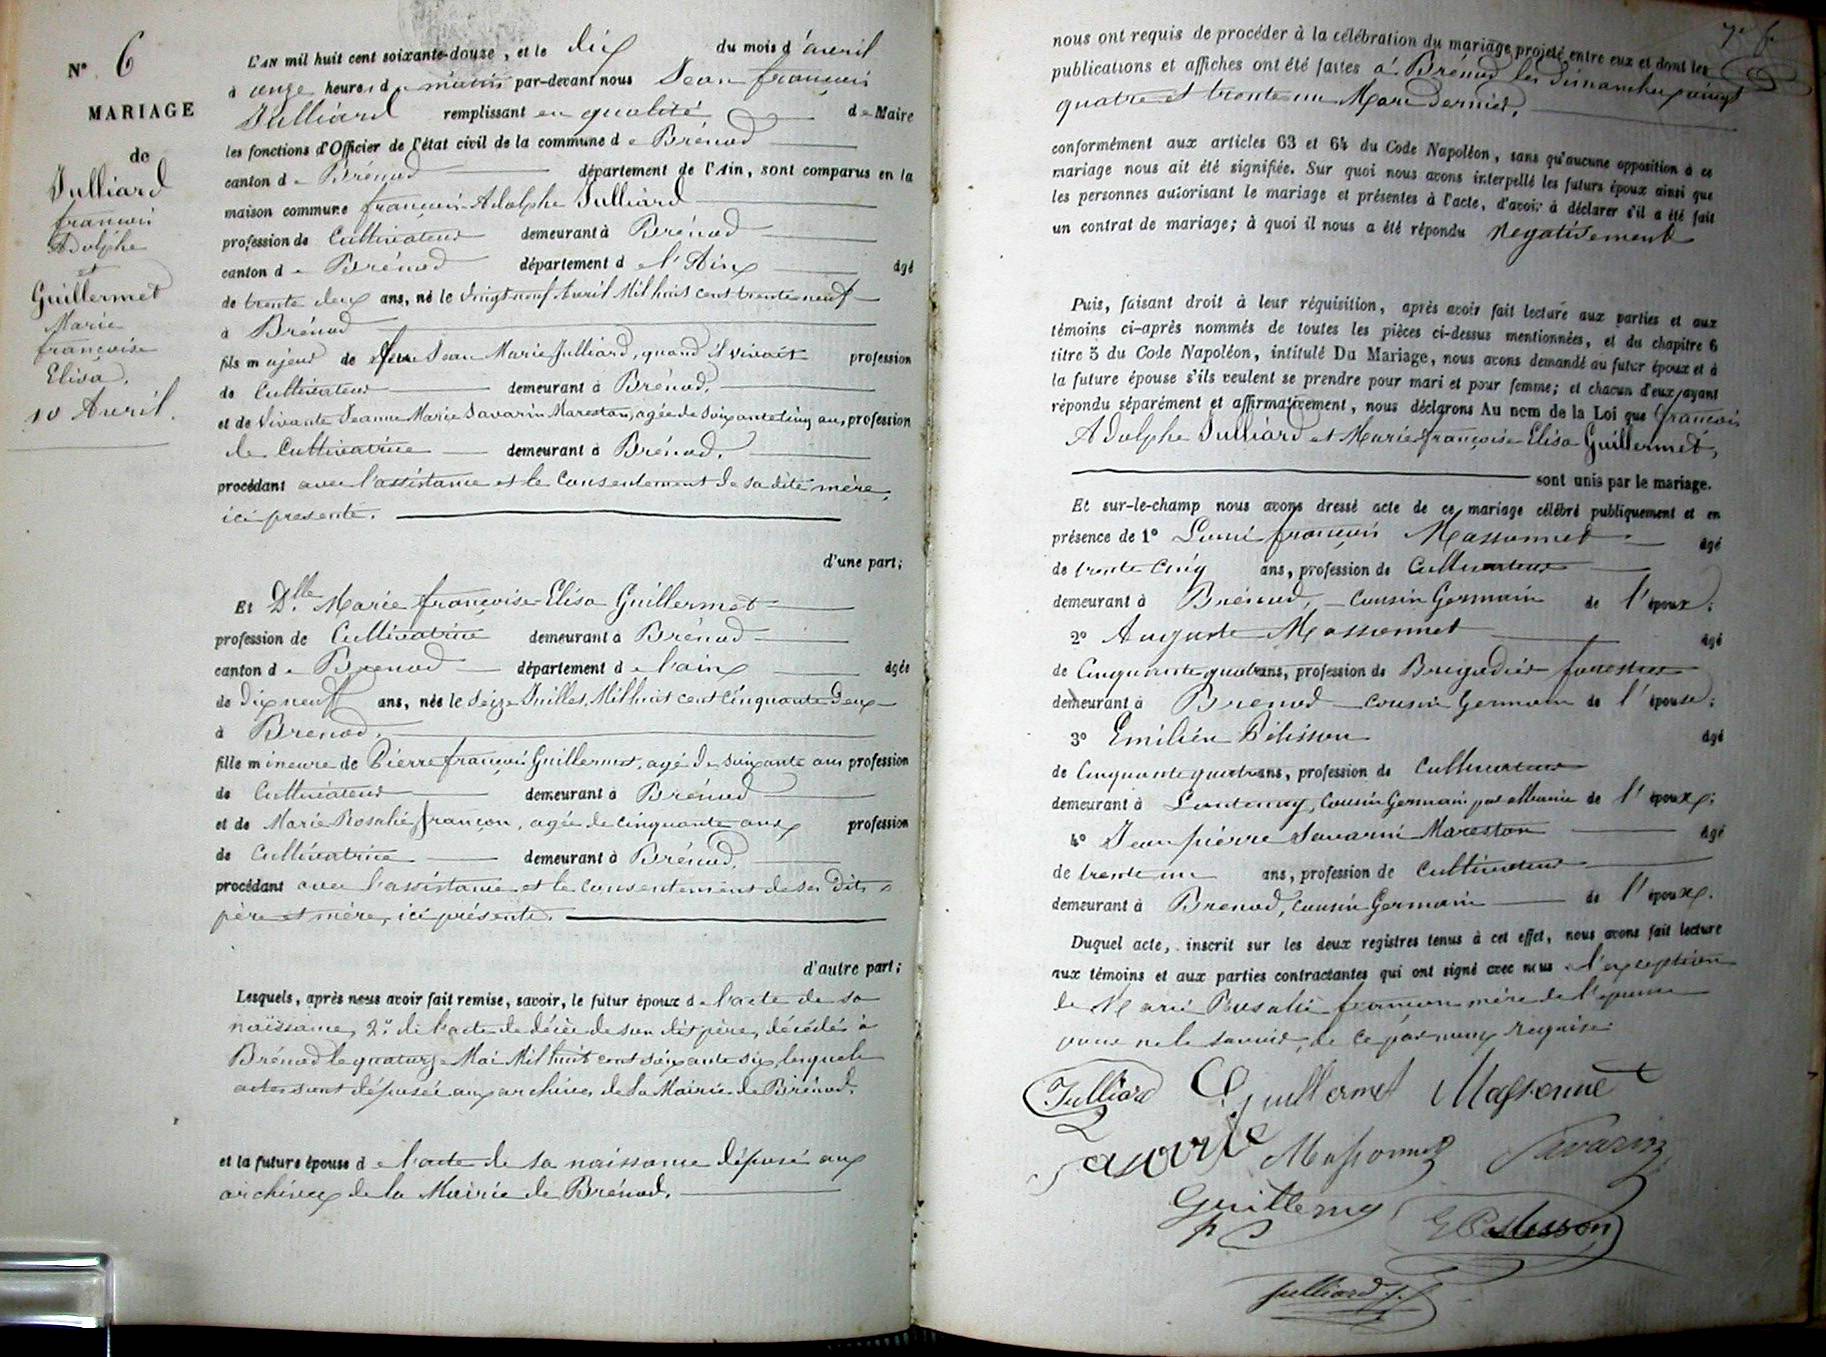 N° 6
MARIAGE
de
Julliard
françois
Adolphe
et
Guillermet
Marie
françoise
Elisa.
10 Avril.
L'AN mil huit cent soixante-douze, et le dix du mois d'avril
à onze heures du matin par-devant nous Jean françois
Julliard remplissant en qualité de Maire
les fonctions d'Officier de l'état civil de la commune de Brénod
canton de Brénod département de l'Ain, sont comparus en la
maison commune françois Adolphe Julliard
profession de Cultivateur demeurant à Brénod
canton de Brénod département de l'Ain âgé
de trente deux ans, né le vingt neuf Avril Mil huit cent trente neuf
à Brénod
fils majeur de feu Jean Marie Julliard, quand il vivait profession
de Cultivateur demeurant à Brénod.
et de vivante Jeanne Marie Savarin Mareston, agée de soixante cinq ans, profession
de Cultivatrice demeurant à Brénod.
procédant avec l'assistance et le consentement de sa dite mère,
ici présente.
d'une part;
Et Dlle Marie françoise Elisa Guillermet
profession de Cultivatrice demeurant à Brénod
canton de Brenod département de l'ain âgée
de dix neuf ans, née le seize Juillet Mil huit cent cinquante deux
à Brenod.
fille mineure de Pierre françois Guillermet, agé de soixante ans profession
de Cultivateur demeurant à Brénod
et de Marie Rosalie françon, agée de cinquante ans profession
de Cultivatrice demeurant à Brénod.
procédant avec l'assistance et le consentement de ses dits
père et mère, ici présents.
d'autre part;
Lesquels, après nous avoir fait remise, savoir, le futur époux de l'acte de sa
naissance, 2° de l'acte de décès de son dit père, décédé à
Brénod le quatorze Mai Mil huit cent soixante six, lesquels
actes sont déposés aux archives de la Mairie de Brénod.
et la future épouse de l'acte de sa naissance déposé aux
archives de la Mairie de Brénod.
nous ont requis de procéder à la célébration du mariage projeté entre eux et dont les
publications et affiches ont été faites à Brénod les dimanches vingt
quatre et trente un Mars dernier.
conformément aux articles 63 et 64 du Code Napoléon, sans qu'aucune opposition à ce
mariage nous ait été signifiée. Sur quoi nous avons interpellé les futurs époux ainsi que
les personnes autorisant le mariage et présentes à l'acte, d'avoir à déclarer s'il a été fait
un contrat de mariage; à quoi il nous a été répondu Negativement
Puis, faisant droit à leur réquisition, après avoir fait lecture aux parties et aux
témoins ci-après nommés de toutes les pièces ci-dessus mentionnées, et du chapitre 6
titre 5 du Code Napoléon, intitulé Du Mariage, nous avons demandé au futur époux et à
la future épouse s'ils veulent se prendre pour mari et pour femme; et chacun d'eux ayant
répondu séparément et affirmativement, nous déclarons Au nom de la Loi que françois
Adolphe Julliard et Marie françoise Elisa Guillermet,
sont unis par le mariage.
Et sur-le-champ nous avons dressé acte de ce mariage célébré publiquement et en
présence de 1° Louis françois Massonnet âgé
de trente cinq ans, profession de Cultivateur
demeurant à Brénod, cousin Germain de l'époux;
2° Auguste Massonnet âgé
de Cinquante quatre ans, profession de Brigadier forestier
demeurant à Brenod cousin Germain de l'épouse;
3° Emilien Pélisson âgé
de Cinquante quatre ans, profession de Cultivateur
demeurant à Lantenay, Cousin Germain par alliance de l'époux;
4° Jean pierre Savarin Mareston âgé
de trente un ans, profession de Cultivateur
demeurant à Brenod, Cousin Germain de l'époux.
Duquel acte, inscrit sur les deux registres tenus à cet effet, nous avons fait lecture
aux témoins et aux parties contractantes qui ont signé avec nous à l'exception
de Marie Rosalie françon mère de l'épouse
pour ne le savoir, de ce par nous requise.
Julliard Guillermet Massonnet
Savarin Massonnet Savarin
Guillermet
E Pelisson
Julliard J. f.